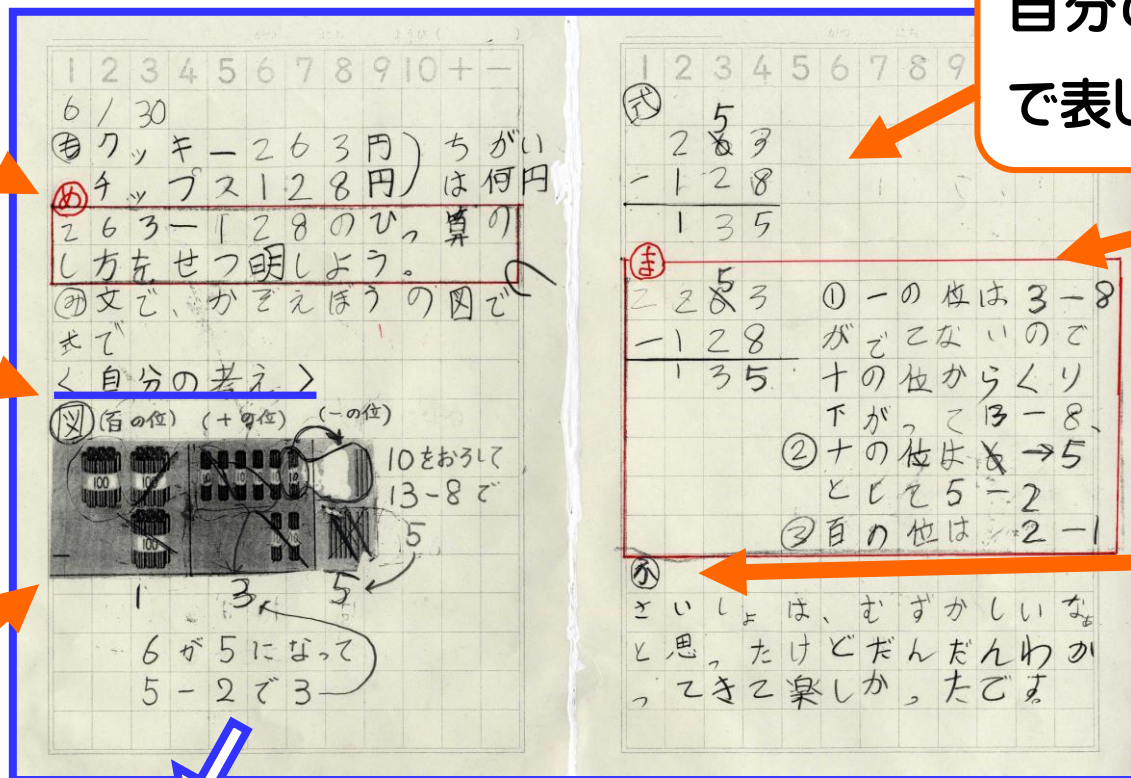 1 2 3 4 5 6 7 8 9 10 + −
6/30
も クッキー263円 ) ちがい
チップス128円 ) は何円
め
263−128のひっ算の
し方をせつ明しよう。
み 文で、かぞえぼうの図で
式で
<自分の考え>
図 (百の位) (十の位) (一の位)
100 100
100
10
10をおろして
13−8で
5
1 3 5
6が5になって
5−2で3
自分の
で表し
1 2 3 4 5 6 7 8 9
式
5
263
−128
135
ま
5
263
−128
135
①一の位は3−8
ができてないので
十の位からくり
下がって13−8、
②十の位は6→5
として5−2
③百の位は2−1
ふ
さいしょは、むずかしいなぁ
と思ったけどだんだんわか
ってきて楽しかったです